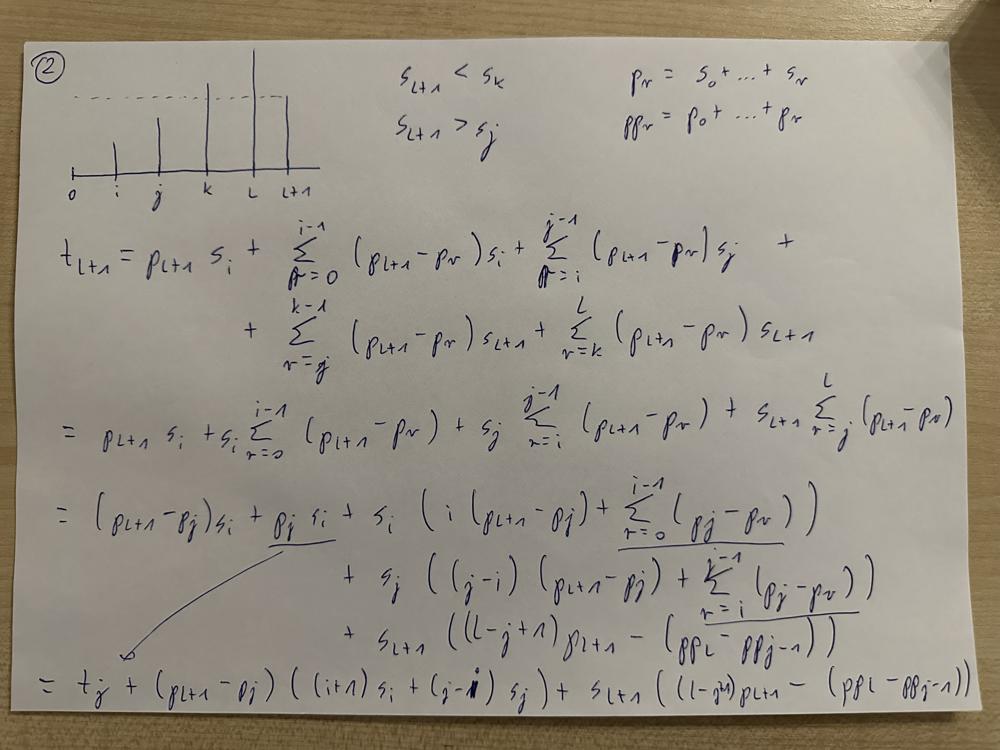 ②
s_{L+1} < s_k
p_r = s_0 + ... + s_r
s_{L+1} > s_j
pp_r = p_0 + ... + p_r
0 i j k L L+1
t_{L+1} = p_{L+1} s_i + \sum_{r=0}^{i-1} (p_{L+1} - p_r) s_i + \sum_{r=i}^{j-1} (p_{L+1} - p_r) s_j +
+ \sum_{r=j}^{k-1} (p_{L+1} - p_r) s_{L+1} + \sum_{r=k}^{L} (p_{L+1} - p_r) s_{L+1}
= p_{L+1} s_i + s_i \sum_{r=0}^{i-1} (p_{L+1} - p_r) + s_j \sum_{r=i}^{j-1} (p_{L+1} - p_r) + s_{L+1} \sum_{r=j}^{L} (p_{L+1} - p_r)
= (p_{L+1} - p_j) s_i + p_j s_i + s_i (i (p_{L+1} - p_j) + \sum_{r=0}^{i-1} (p_j - p_r))
+ s_j ((j-i) (p_{L+1} - p_j) + \sum_{r=i}^{j-1} (p_j - p_r))
+ s_{L+1} ((L-j+1) p_{L+1} - (pp_L - pp_{j-1}))
= t_j + (p_{L+1} - p_j) ((i+1) s_i + (j-i) s_j) + s_{L+1} ((L-j+1) p_{L+1} - (pp_L - pp_{j-1}))